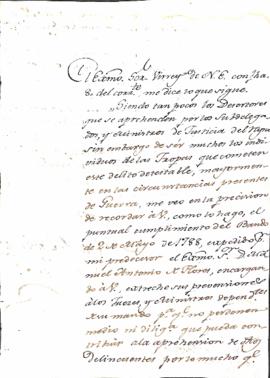 El Exmo. Sor. Virrey de N. E. con fha.
8 del corrte. me dice lo que sigue.
Siendo tan pocos los Desertores
que se aprehenden por los Subdelega
dos, y Ministros de Justicia del
sin embargo de ser muchos los in
dividuos de las Tropas que cometen
este delito detestable, mayormen
te en las circunstancias presentes
de Guerra, me veo en la precision
de recordar á V. como lo hago, el
puntual cumplimiento del Bando
de 2 de Mayo de 1788, expedido p.
mi predecesor el Exmo. Sr. Dn. Ma
nuel Antonio Flores, encargan
do á V. estreche sus prevenciones
á los Jueces, y Ministros depend.tes
de su mando pa. q. no perdonen
medio ni dilig.a que pueda con
tribuir á la aprehension de
Delincuentes por lo mucho q.e